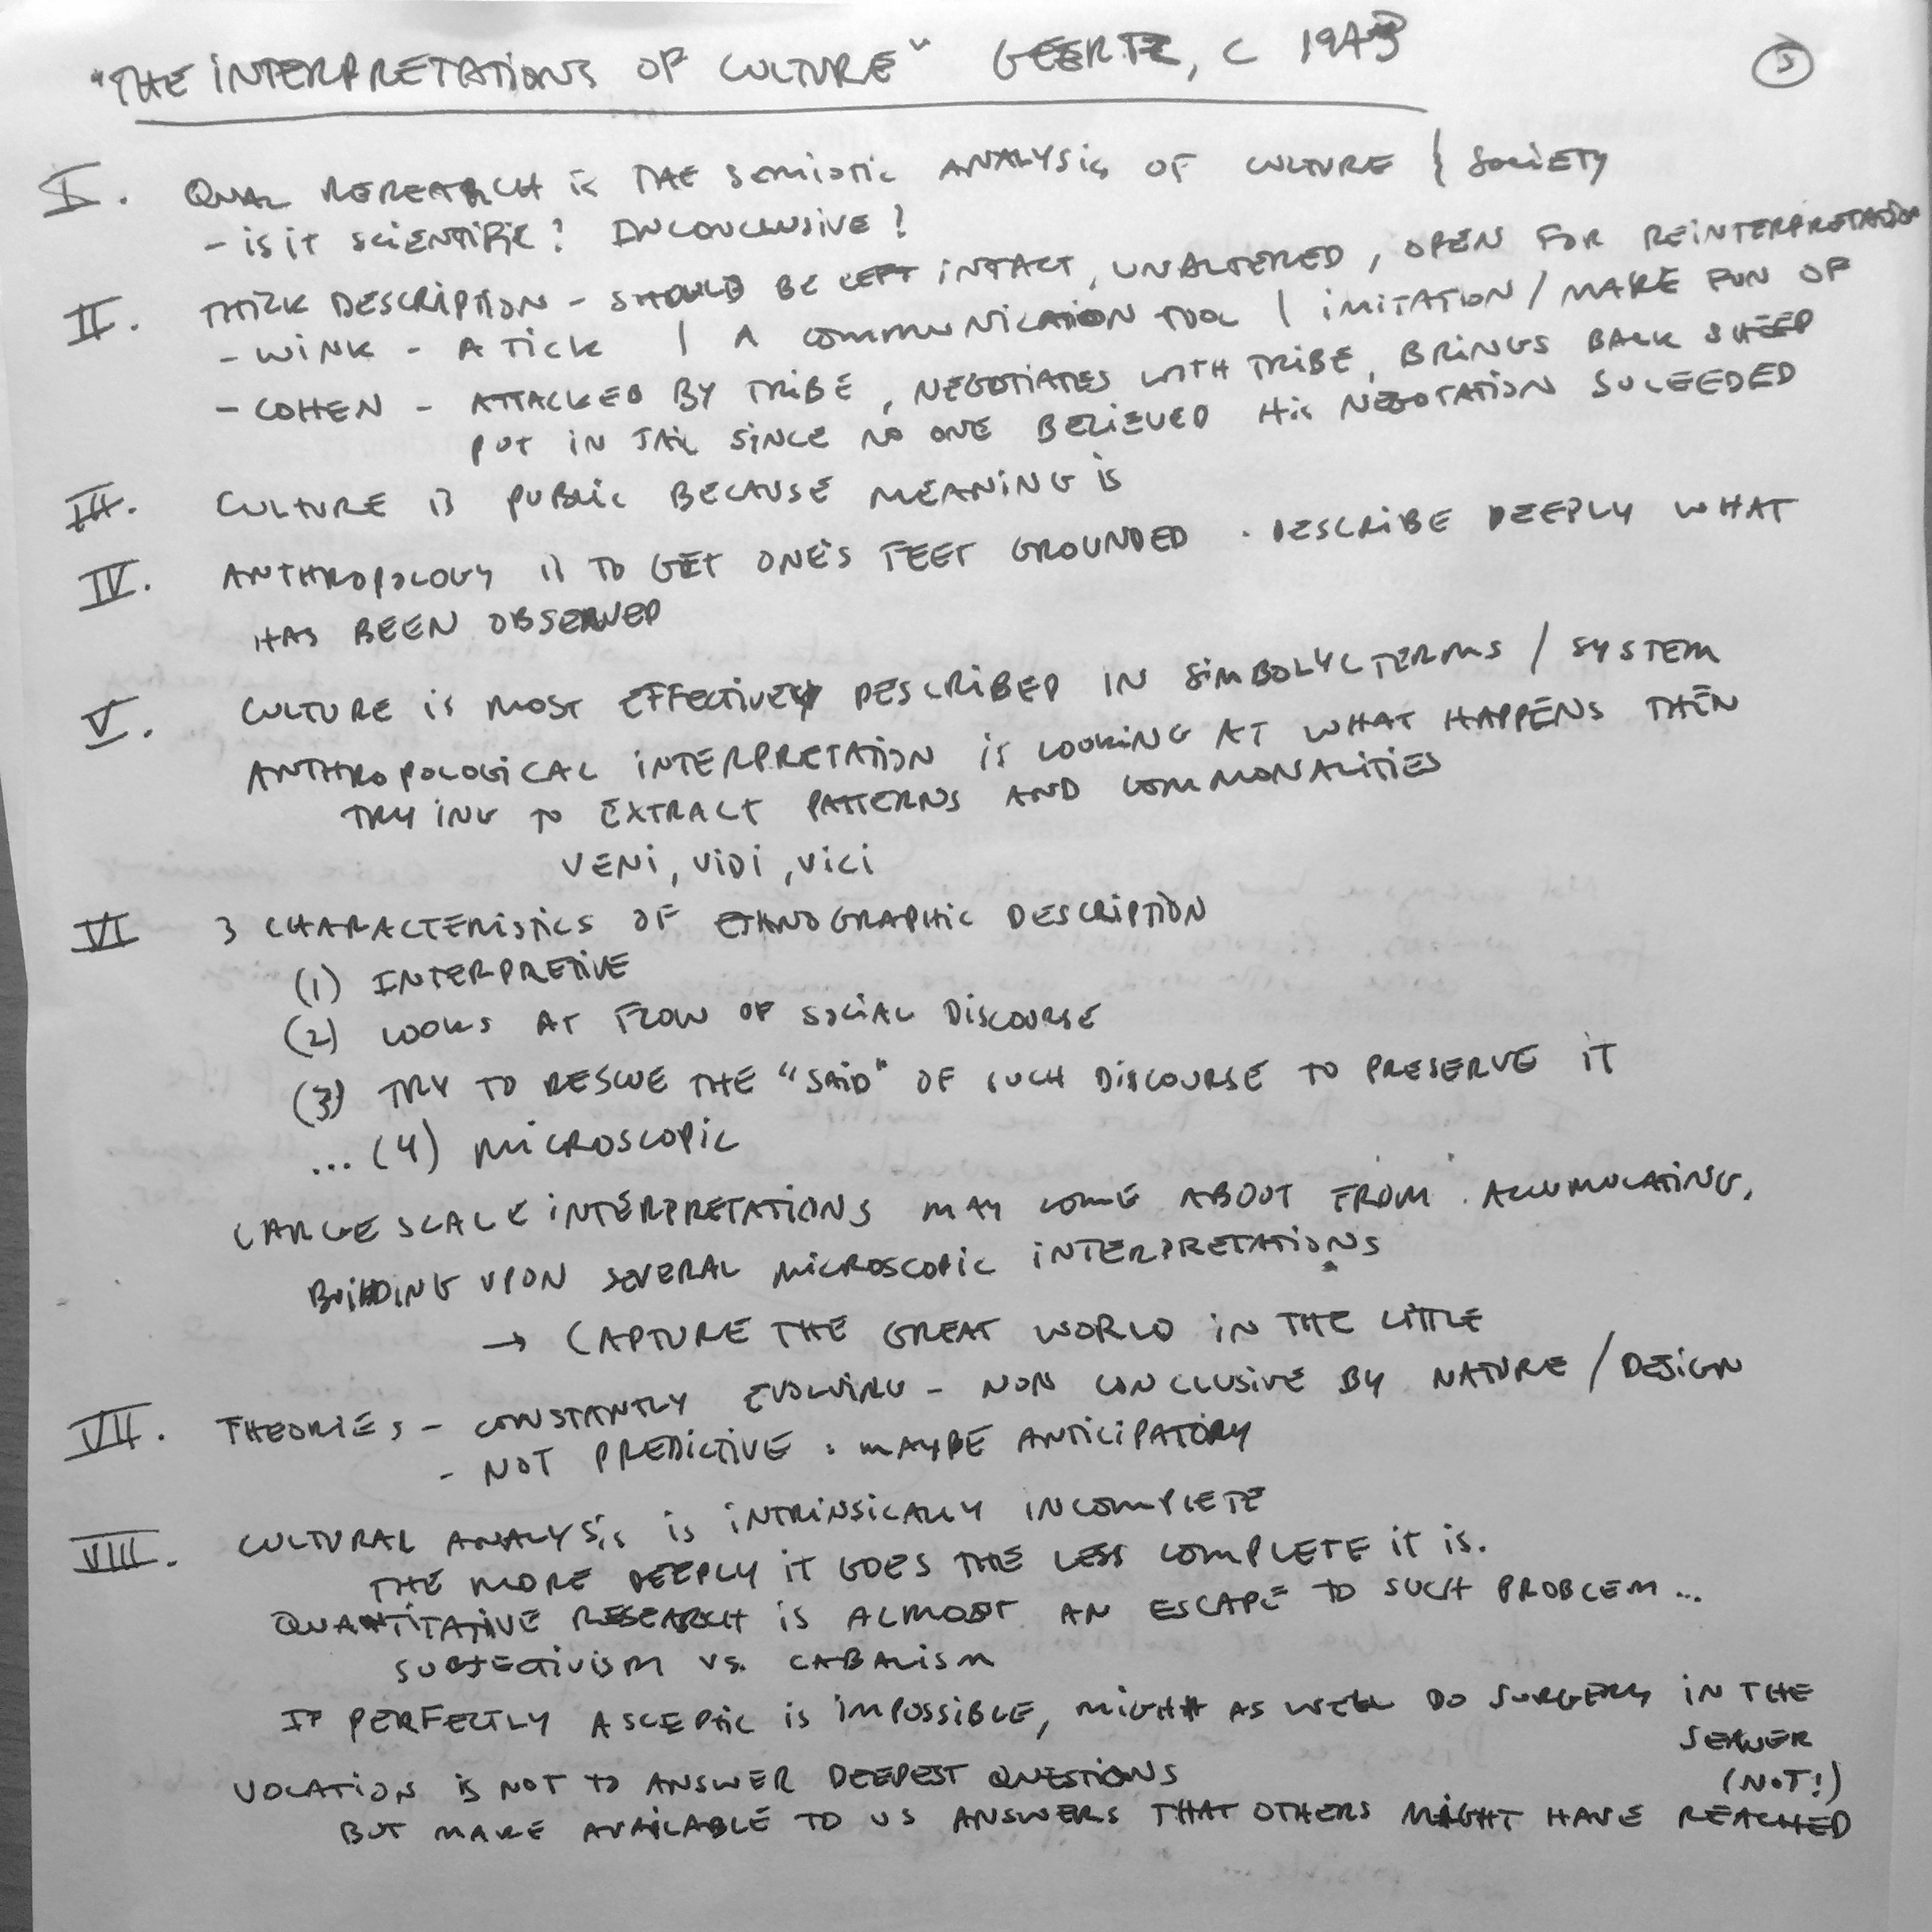 "THE INTERPRETATIONS OF CULTURE" GEERTZ, C 1973 5
I. QUAL RESEARCH is THE SEMIOTIC ANALYSIS OF CULTURE & SOCIETY
- is iT SCIENTIFIC? INCONCLUSIVE?
II. THICK DESCRIPTION - SHOULD BE LEFT INTACT, UNALTERED, OPEN FOR REINTERPRETATION
- WINK - A TICK | A COMMUNICATION TOOL | IMITATION / MAKE FUN OF
- COHEN - ATTACKED BY TRIBE, NEGOTIATES WITH TRIBE, BRINGS BACK SHEEP
PUT IN JAIL SINCE NO ONE BELIEVED HIS NEGOTATION SUCEEDED
III. CULTURE IS PUBLIC BECAUSE MEANING IS
IV. ANTHROPOLOGY IS TO GET ONE'S FEET GROUNDED . DESCRIBE DEEPLY WHAT
HAS BEEN OBSERVED
V. CULTURE is MOST EFFECTIVELY DESCRIBED IN SIMBOLYC TERMS / SYSTEM
ANTHROPOLOGICAL INTERPRETATION is LOOKING AT WHAT HAPPENS THEN
TRYING TO EXTRACT PATTERNS AND COMMONALITIES
VENI, VIDI, VICI
VI 3 CHARACTERISTICS OF ETHNOGRAPHIC DESCRIPTION
(1) INTERPRETIVE
(2) LOOKS AT FLOW OF SOCIAL DISCOURSE
(3) TRY TO RESCUE THE "SAID" OF SUCH DISCOURSE TO PRESERVE IT
... (4) MICROSCOPIC
LARGE SCALE INTERPRETATIONS MAY COME ABOUT FROM ACCUMULATING,
BUILDING UPON SEVERAL MICROSCOPIC INTERPRETATIONS
→ CAPTURE THE GREAT WORLD IN THE LITTLE
VII. THEORIES - CONSTANTLY EVOLVING - NON CONCLUSIVE BY NATURE / DESIGN
- NOT PREDICTIVE . MAYBE ANTICIPATORY
VIII. CULTURAL ANALYSIS is INTRINSICALLY INCOMPLETE
THE MORE DEEPLY IT GOES THE LESS COMPLETE IT is.
QUANTITATIVE RESEARCH IS ALMOST AN ESCAPE TO SUCH PROBLEM...
SUBJECTIVISM VS. CABALISM
IF PERFECTLY ASCEPTIC IS IMPOSSIBLE, MIGHT AS WELL DO SURGERY IN THE
SEWER
(NOT!)
VOCATION IS NOT TO ANSWER DEEPEST QUESTIONS
BUT MAKE AVAILABLE TO US ANSWERS THAT OTHERS MIGHT HAVE REACHED